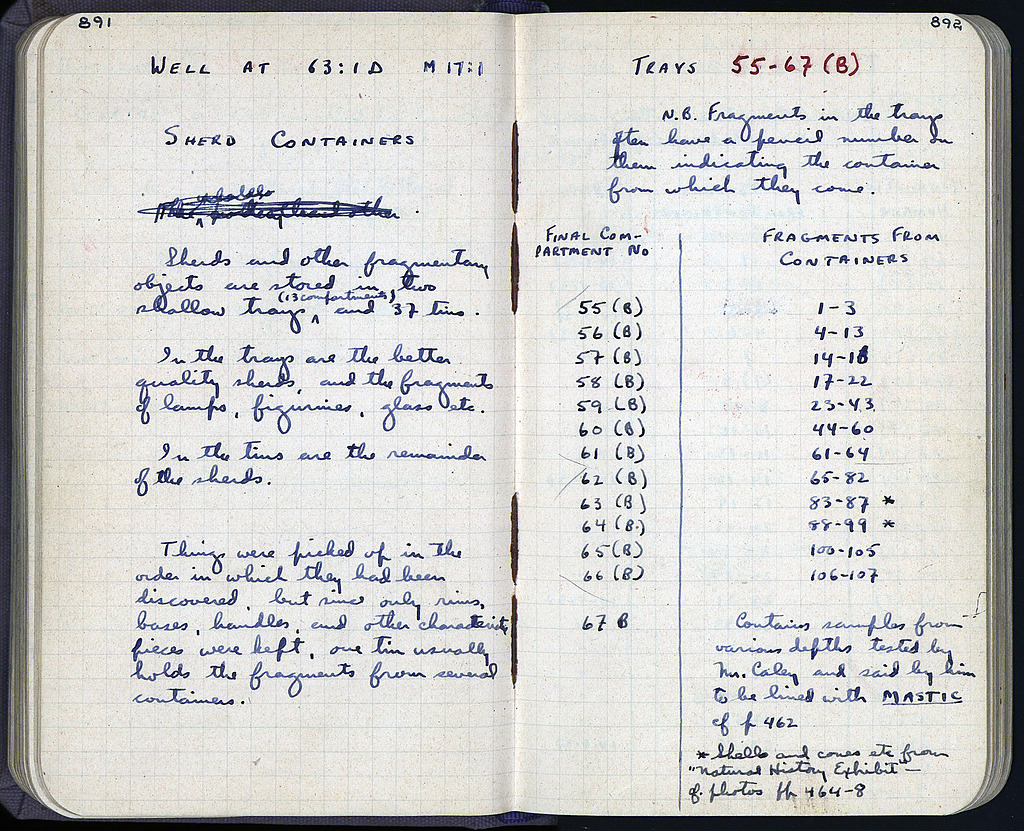 891
WELL AT 63:1D M 17:1
SHERD CONTAINERS
Sherds and other fragmentary
objects are stored in two
shallow trays (13 compartments) and 37 tins.
In the trays are the better
quality sherds, and the fragments
of lamps, figurines, glass etc.
In the tins are the remainder
of the sherds.
Things were picked up in the
order in which they had been
discovered, but since only rims,
bases, handles, and other characteristic
pieces were kept, one tin usually
holds the fragments from several
containers.
892
TRAYS 55-67 (B)
N.B. Fragments in the trays
often have a pencil number on
them indicating the container
from which they come.
FINAL COM-
PARTMENT NO
FRAGMENTS FROM
CONTAINERS
55 (B) 1-3
56 (B) 4-13
57 (B) 14-16
58 (B) 17-22
59 (B) 23-43
60 (B) 44-60
61 (B) 61-64
62 (B) 65-82
63 (B) 83-87 *
64 (B) 88-99 *
65 (B) 100-105
66 (B) 106-107
67 B Contains samples from
various depths tested by
Mr. Caley and said by him
to be lined with MASTIC
cf p 462
* Shells and cones etc from
"Natural History Exhibit" —
cf. photos pp 464-8